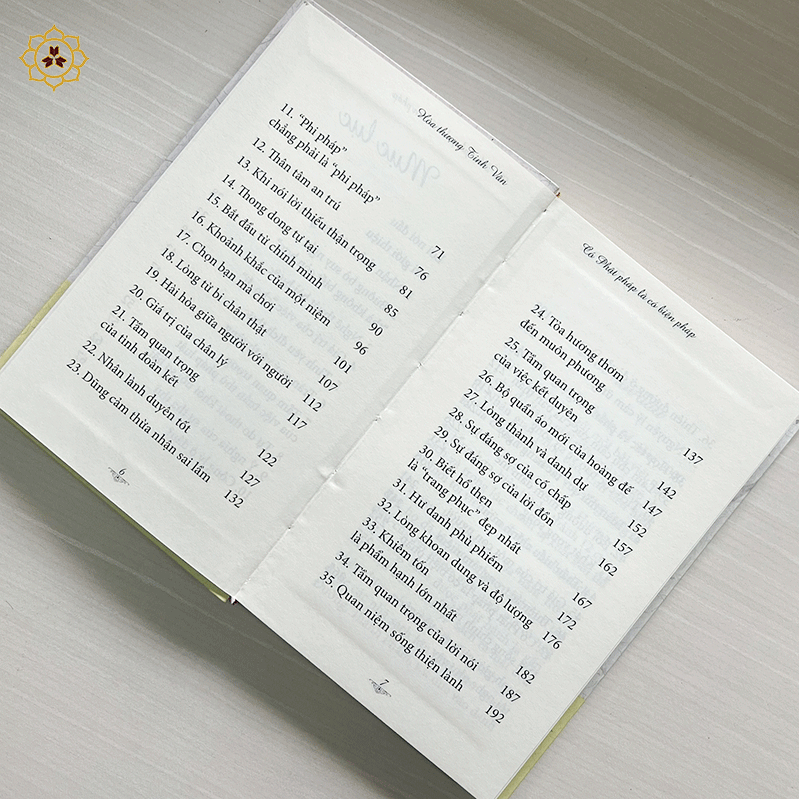 Hòa thượng Tinh Vân
11. “Phi pháp”
chẳng phải là “phi pháp” 71
12. Thân tâm an trú 76
13. Khi nói lời thiếu thận trọng 81
14. Thong dong tự tại 85
15. Bắt đầu từ chính mình 90
16. Khoảnh khắc của một niệm 96
17. Chọn bạn mà chơi 101
18. Lòng từ bi chân thật 107
19. Hài hòa giữa người với người 112
20. Giá trị của chân lý 117
21. Tầm quan trọng
của tình đoàn kết 122
22. Nhân lành duyên tốt 127
23. Dũng cảm thừa nhận sai lầm 132
6
Có Phật pháp là có biện pháp
24. Tỏa hương thơm
đến muôn phương 137
25. Tầm quan trọng
của việc kết duyên 142
26. Bộ quần áo mới của hoàng đế 147
27. Lòng thành và danh dự 152
28. Sự đáng sợ của cố chấp 157
29. Sự đáng sợ của lời đồn 162
30. Biết hổ thẹn
là “trang phục” đẹp nhất 167
31. Hư danh phù phiếm 172
32. Lòng khoan dung và độ lượng 176
33. Khiêm tốn
là phẩm hạnh lớn nhất 182
34. Tầm quan trọng của lời nói 187
35. Quan niệm sống thiện lành 192
7